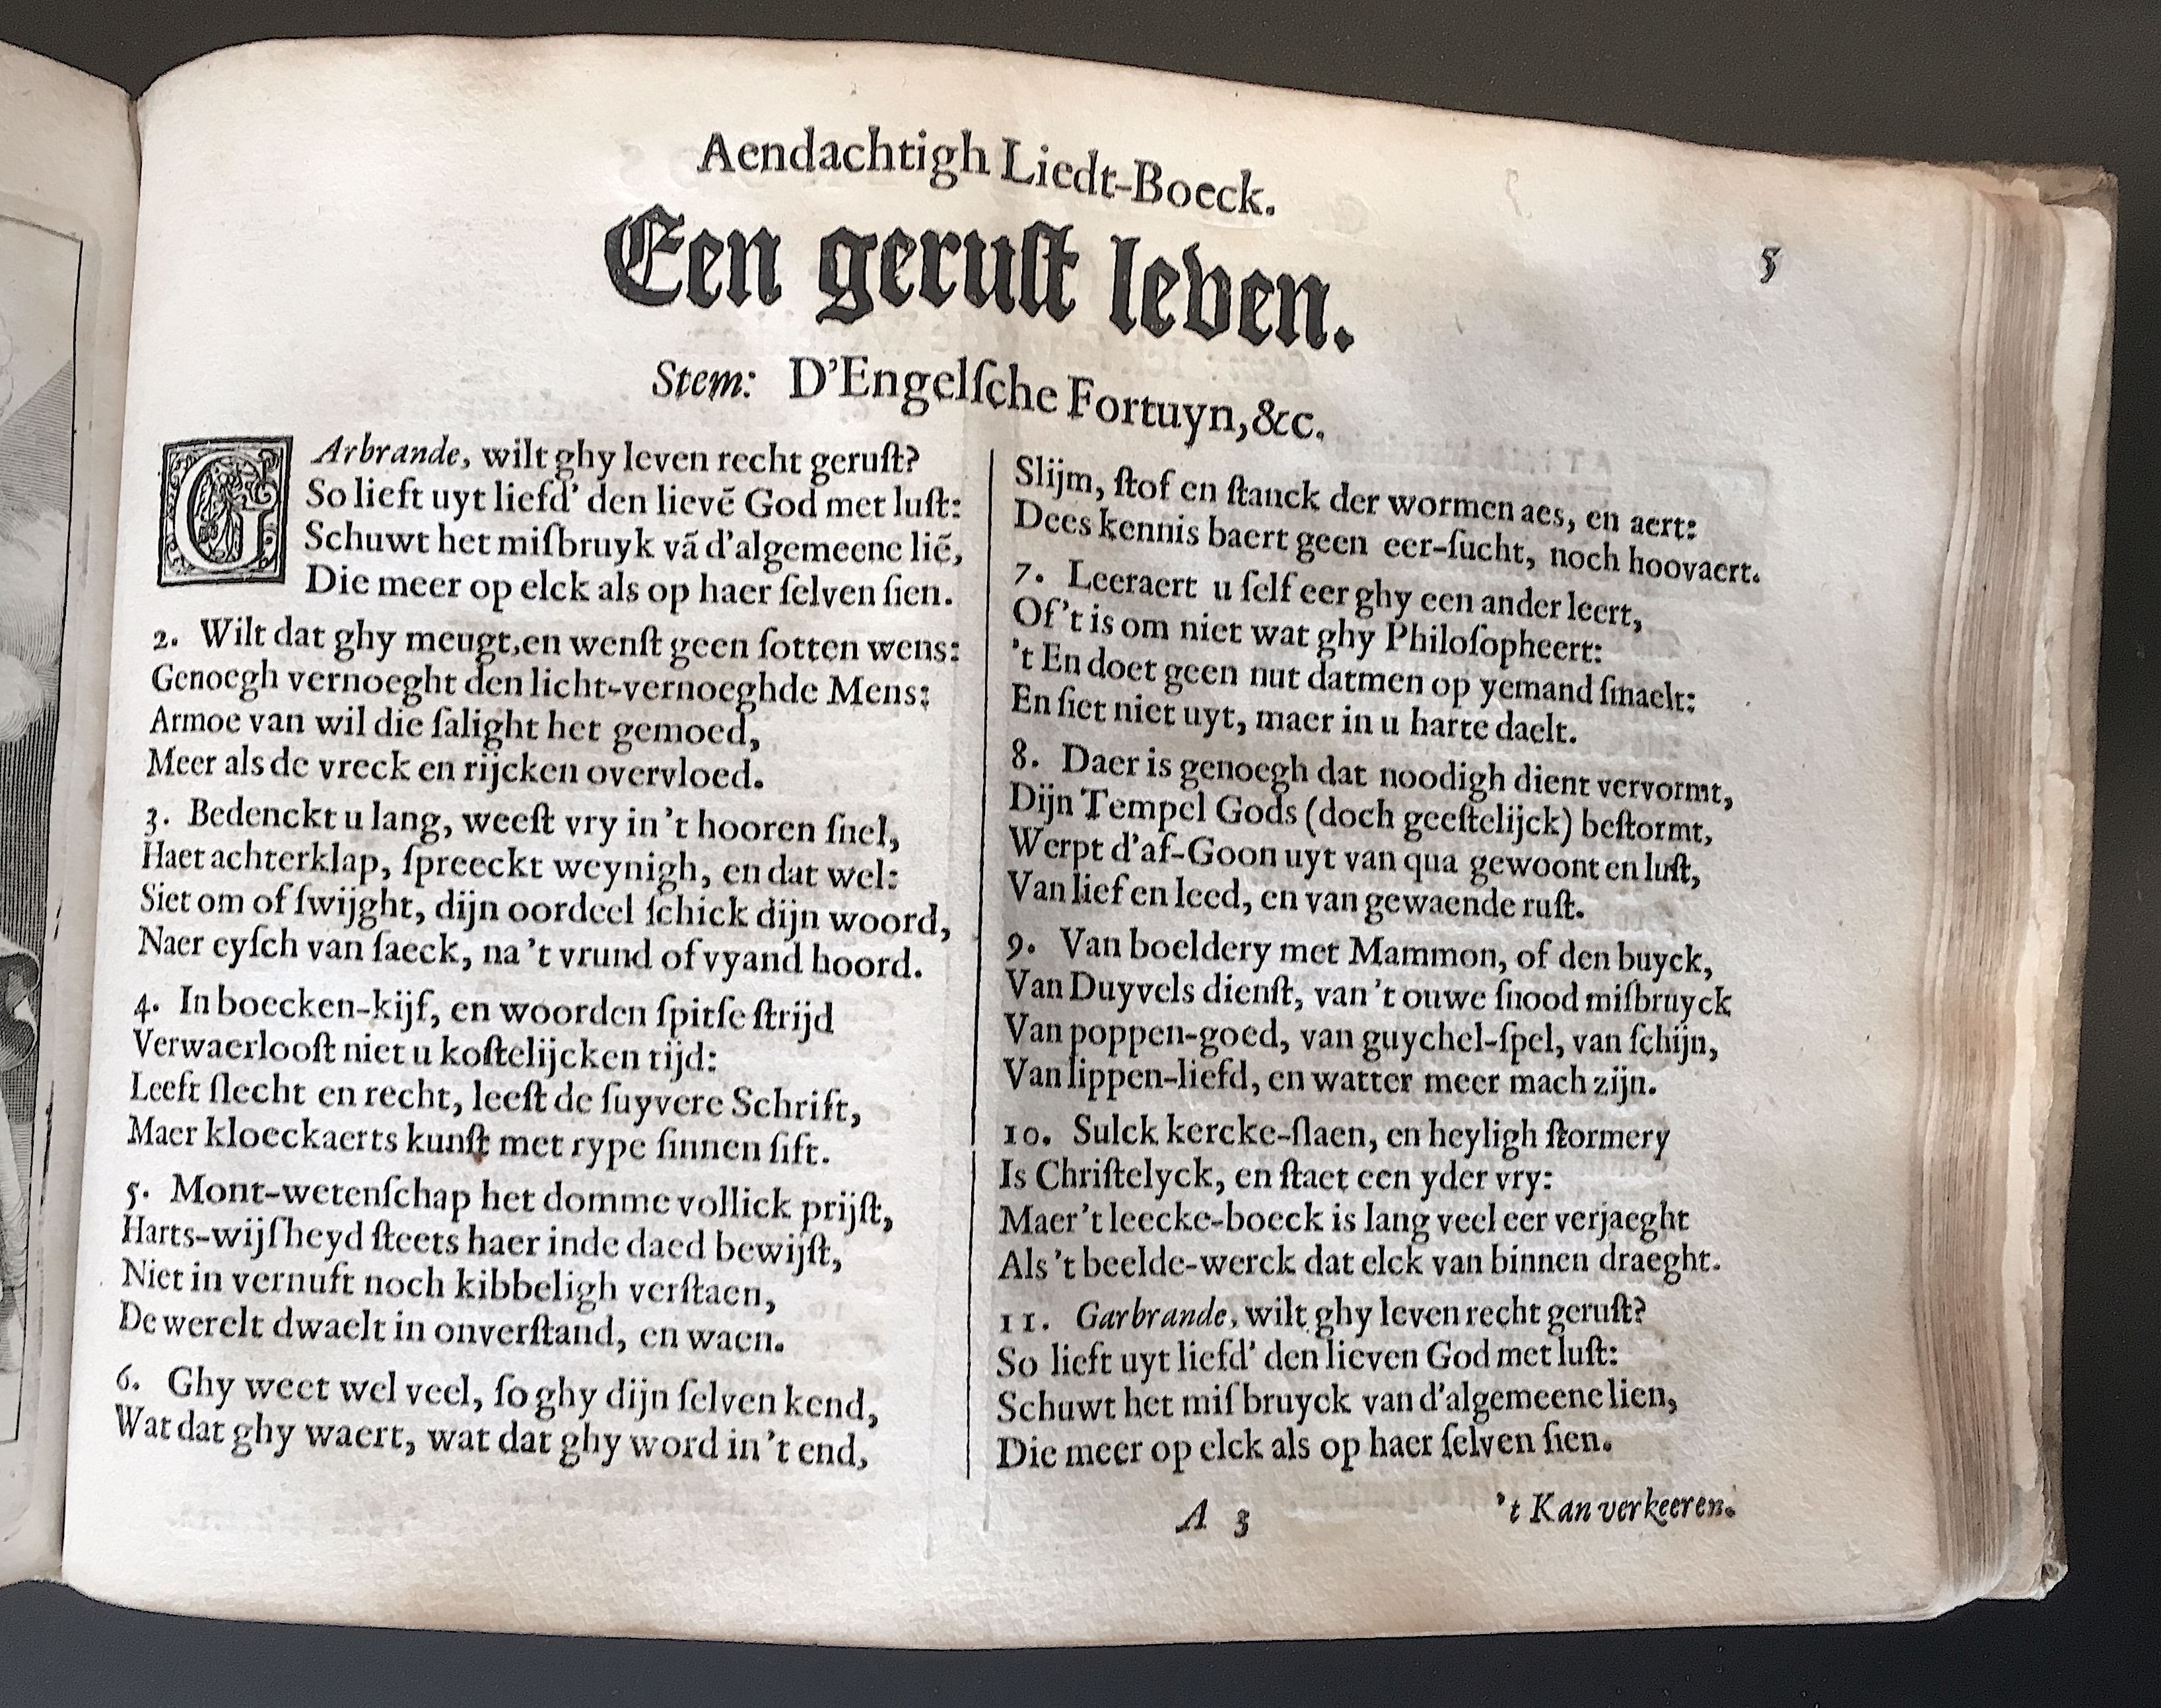 Aendachtigh Liedt-Boeck.
5
Een geruſt leven.
Stem: D'Engelſche Fortuyn, &c.
GArbrande, wilt ghy leven recht geruſt?
So lieft uyt liefd' den lievẽ God met luſt:
Schuwt het miſbruyk vã d'algemeene liẽ,
Die meer op elck als op haer ſelven ſien.
2. Wilt dat ghy meugt, en wenſt geen ſotten wens:
Genoegh vernoeght den licht-vernoeghde Mens:
Armoe van wil die ſalight het gemoed,
Meer als de vreck en rijcken overvloed.
3. Bedenckt u lang, weeſt vry in 't hooren ſnel,
Haet achterklap, ſpreeckt weynigh, en dat wel:
Siet om of ſwijght, dijn oordeel ſchick dijn woord,
Naer eyſch van ſaeck, na 't vrund of vyand hoord.
4. In boecken-kijf, en woorden ſpitſe ſtrijd
Verwaerlooſt niet u koſtelijcken tijd:
Leeft ſlecht en recht, leeſt de ſuyvere Schrift,
Maer kloeckaerts kunſt met rype ſinnen ſift.
5. Mont-wetenſchap het domme vollick prijſt,
Harts-wijſheyd ſteets haer inde daed bewijſt,
Niet in vernuft noch kibbeligh verſtaen,
De werelt dwaelt in onverſtand, en waen.
6. Ghy weet wel veel, ſo ghy dijn ſelven kend,
Wat dat ghy waert, wat dat ghy word in 't end,
Slijm, ſtof en ſtanck der wormen aes, en aert:
Dees kennis baert geen eer-ſucht, noch hoovaert.
7. Leeraert u ſelf eer ghy een ander leert,
Of 't is om niet wat ghy Philoſopheert:
't En doet geen nut datmen op yemand ſmaelt:
En ſiet niet uyt, maer in u harte daelt.
8. Daer is genoegh dat noodigh dient vervormt,
Dijn Tempel Gods (doch geeſtelijck) beſtormt,
Werpt d'af-Goon uyt van qua gewoont en luſt,
Van lief en leed, en van gewaende ruſt.
9. Van boeldery met Mammon, of den buyck,
Van Duyvels dienſt, van 't ouwe ſnood miſbruyck
Van poppen-goed, van guychel-ſpel, van ſchijn,
Van lippen-liefd, en watter meer mach zijn.
10. Sulck kercke-ſlaen, en heyligh ſtormery
Is Chriſtelyck, en ſtaet een yder vry:
Maer 't leecke-boeck is lang veel eer verjaeght
Als 't beelde-werck dat elck van binnen draeght.
11. Garbrande, wilt ghy leven recht geruſt?
So lieft uyt liefd' den lieven God met luſt:
Schuwt het miſbruyck van d'algemeene lien,
Die meer op elck als op haer ſelven ſien.
A 3
't Kan verkeeren.